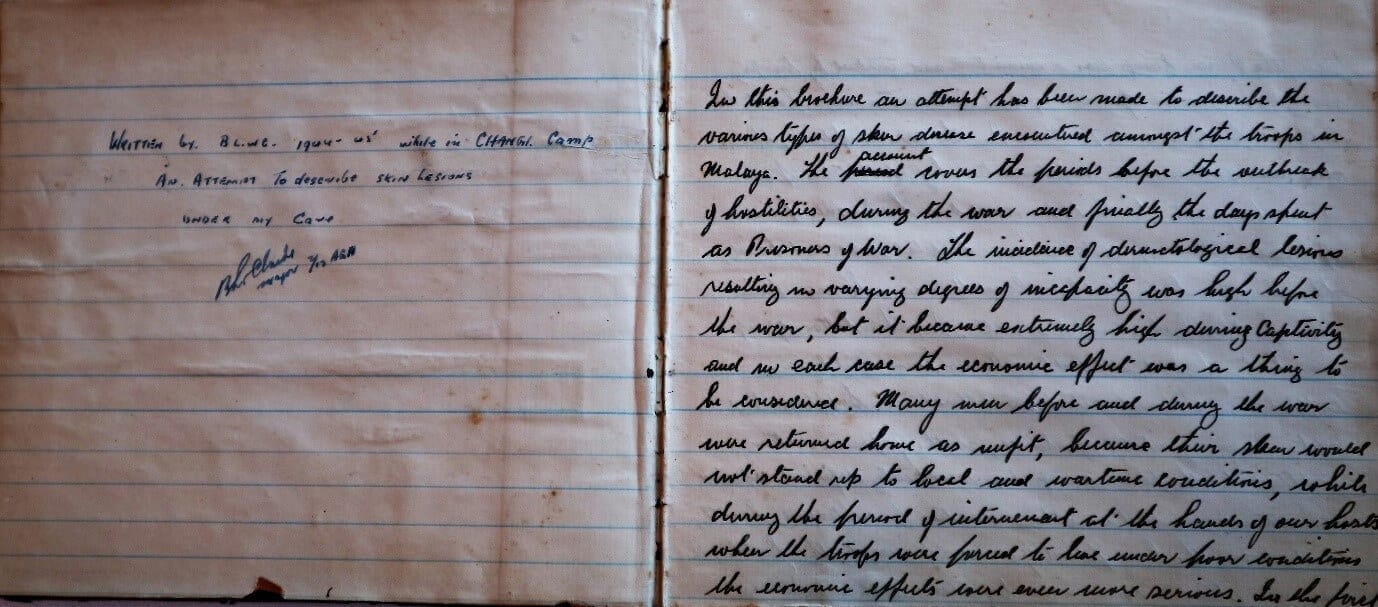 WRITTEN by. B.L.W.C. 1944-45' while in CHANGI. Camp
AN. ATTEMPT To describe SKIN LESIONS
UNDER MY Care
Major 2/12 AGH
In this brochure an attempt has been made to describe the
various types of skin disease encountered amongst the troops in
account
Malaya. The period covers the periods before the outbreak
of hostilities, during the war and finally the days spent
as Prisoners of War. The incidence of dermatological lesions
resulting in varying degrees of incapacity was high before
the war, but it became extremely high during Captivity
and in each case the economic effect was a thing to
be considered. Many men before and during the war
were returned home as unfit, because their skin would
not stand up to local and wartime conditions, while
during the period of internment at the hands of our hosts
when the troops were forced to live under poor conditions
the economic effects were even more serious. In the first